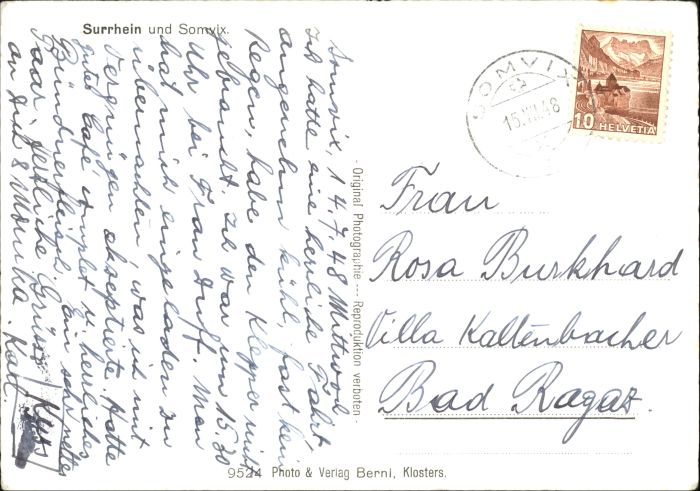 Surrhein und Somvix.
Somvix, 14.7.48 Mittwoch
Ich hatte eine herrliche Fahrt
angenehm kühl, fast kein
Regen, habe den Klepper nicht
gebraucht. Ich war um 15.30
Uhr bei Frau Duff. Man
hat mich eingeladen zu
übernachten, was ich mit
Vergnügen akzeptierte. Hatte
guten Café complet u. herrliches
Bündnerfleisch. Ein schönes
Paar herzliche Grüsse
an Dich & Monika. Kat.
Kuss
- Original Photographie --- Reproduktion verboten -
9524 Photo & Verlag Berni, Klosters.
SOMVIX
15.VII.48
10 HELVETIA
Frau
Rosa Burkhard
Villa Kaltenbacher
Bad Ragaz.